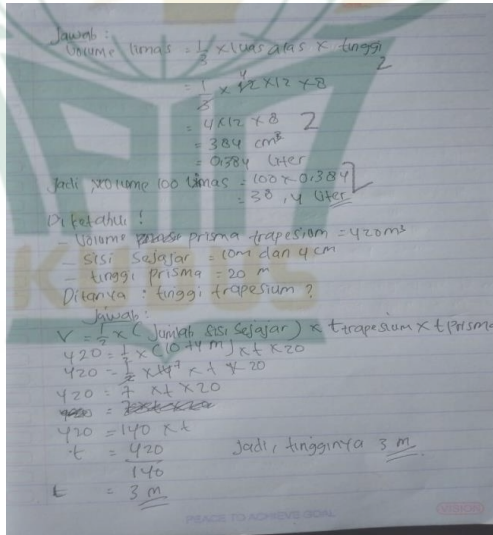 Jawab :
Volume limas = 1/3 x luas alas x tinggi
2
= 1/3 x 12 4 x 12 x 8
= 4 x 12 x 8 2
= 384 cm³
= 0,384 liter
Jadi volume 100 limas = 100 x 0,384
= 38,4 liter
Diketahui :
Volume prisma trapesium = 420 m³
- sisi sejajar = 10m dan 4 cm
- tinggi prisma = 20 m
Ditanya : tinggi trapesium ?
Jawab :
V = 1/2 x (Jumlah sisi sejajar) x t trapesium x t prisma
420 = 1/2 x (10 + 4 m) x t x 20
420 = 1/2 x 14 7 x t x 20
420 = 7 x t x 20
420 = 140 x t
t = 420/140
Jadi, tingginya 3 m
t = 3 m
PEACE TO ACHIEVE GOAL
VISION
KUDUS